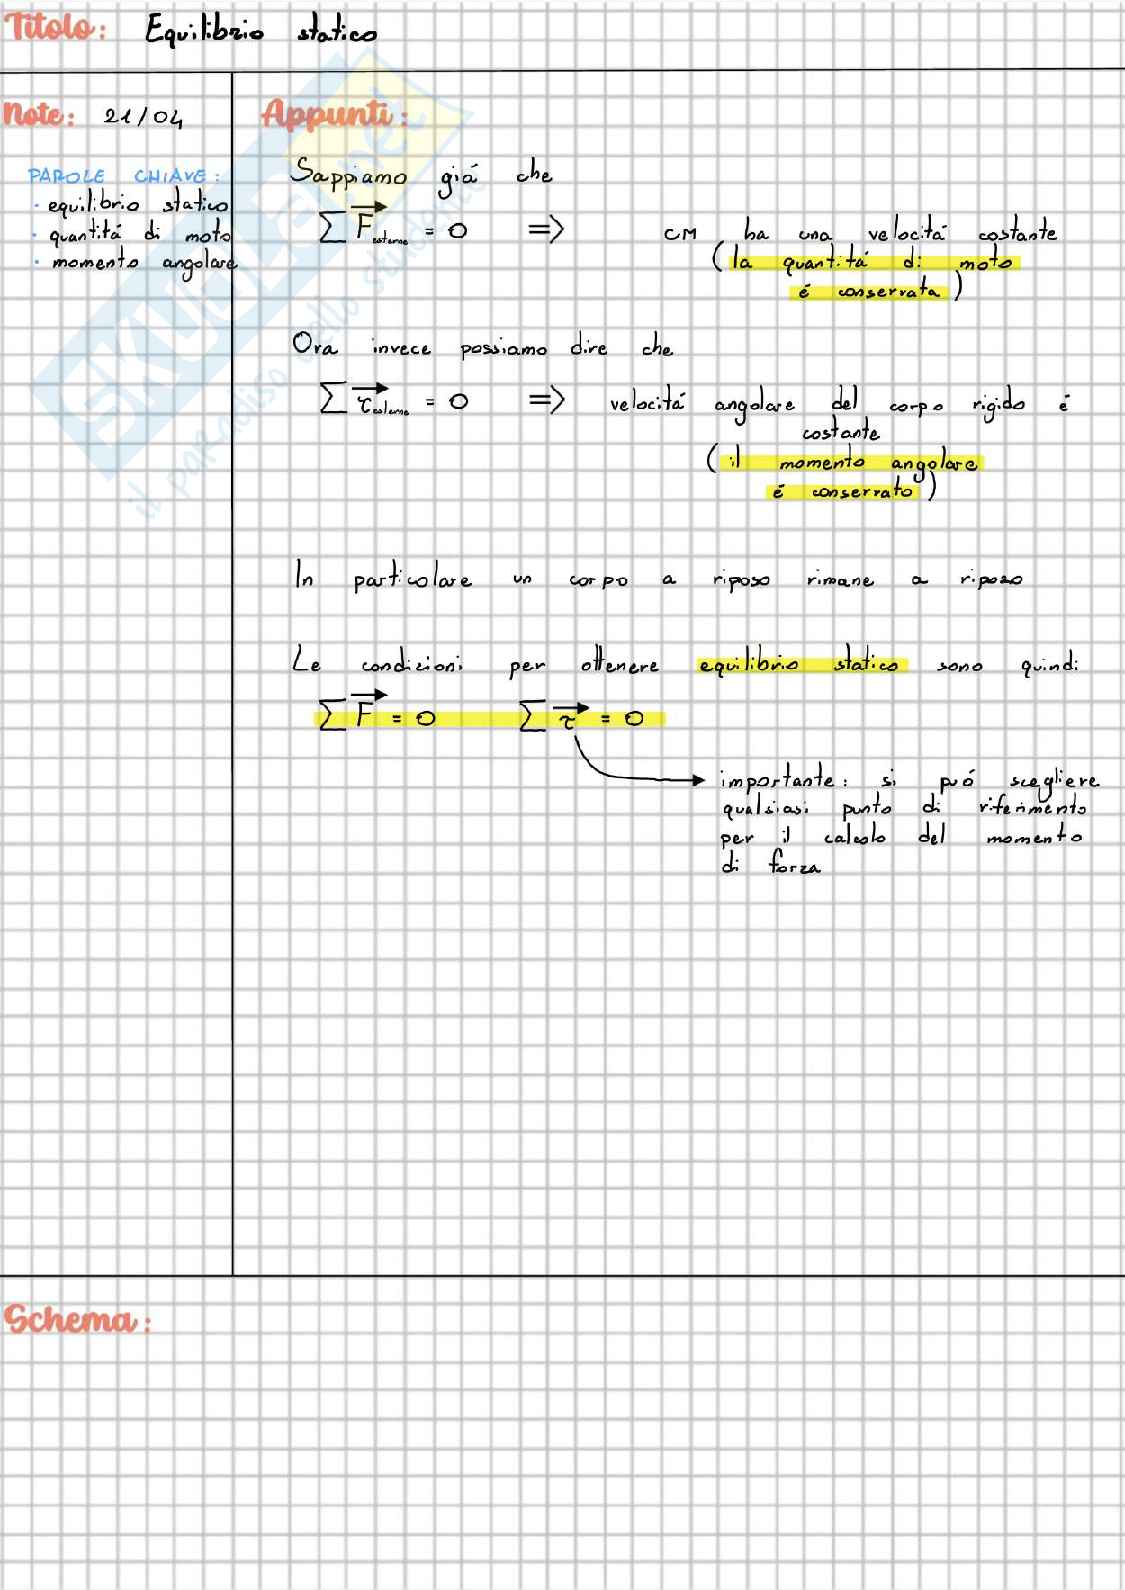 Titolo: Equilibrio statico
Note: 21/04
PAROLE CHIAVE:
· equilibrio statico
· quantitá di moto
· momento angolare
Appunti:
Sappiamo giá che
∑ F⃗esterne = 0 => CM ha una velocitá costante
(la quantitá di moto
é conservata)
Ora invece possiamo dire che
∑ τ⃗esterne = 0 => velocitá angolare del corpo rigido é
costante
(il momento angolare
é conservato)
In particolare un corpo a riposo rimane a riposo
Le condizioni per ottenere equilibrio statico sono quindi:
∑ F⃗ = 0 ∑ τ⃗ = 0
importante: si puó scegliere
qualsiasi punto di riferimento
per il calcolo del momento
di forza
Schema:
SKUOLA.net
il paradiso dello studente